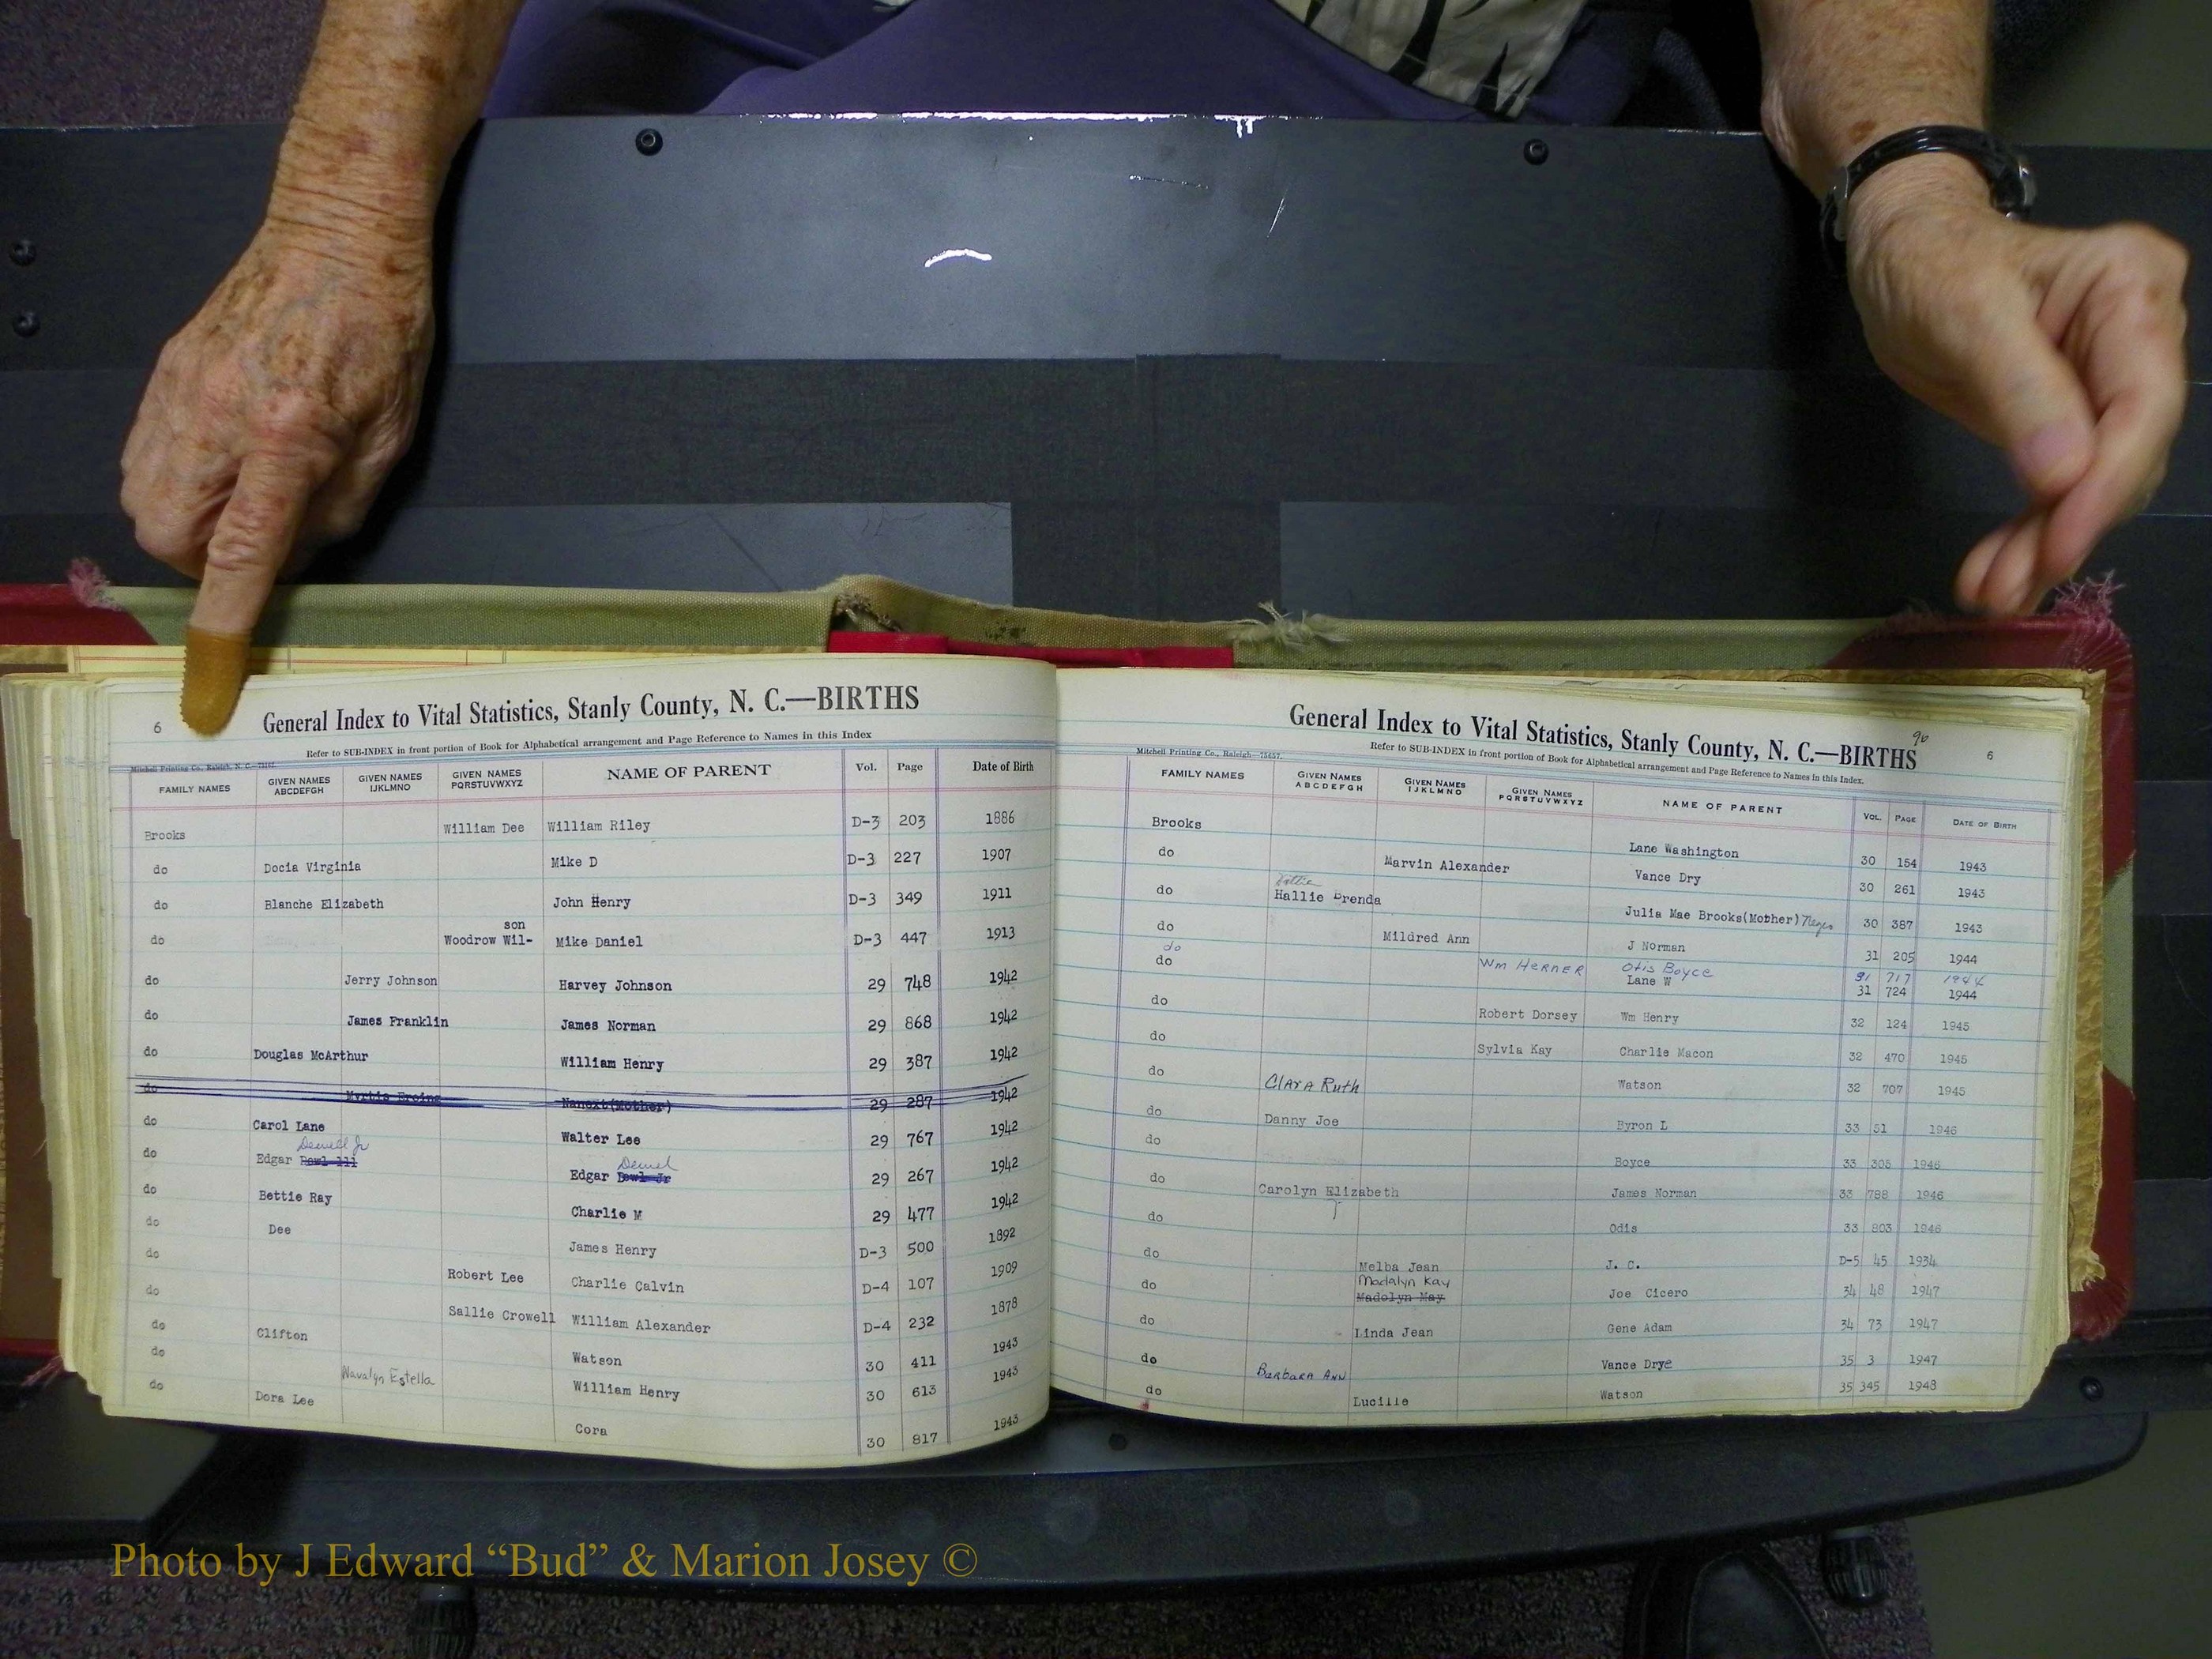 6
General Index to Vital Statistics, Stanly County, N. C.—BIRTHS
Refer to SUB-INDEX in front portion of Book for Alphabetical arrangement and Page Reference to Names in this Index
Mitchell Printing Co., Raleigh, N. C.
FAMILY NAMES GIVEN NAMES ABCDEFGH GIVEN NAMES IJKLMNO GIVEN NAMES PQRSTUVWXYZ NAME OF PARENT Vol. Page Date of Birth
Brooks William Dee William Riley D-3 203 1886
do Docia Virginia Mike D D-3 227 1907
do Blanche Elizabeth John Henry D-3 349 1911
son
do Woodrow Wil- Mike Daniel D-3 447 1913
do Jerry Johnson Harvey Johnson 29 748 1942
do James Franklin James Norman 29 868 1942
do Douglas McArthur William Henry 29 387 1942
do Myrtis (Mother) 29 287 1942
do Carol Lane Walter Lee 29 767 1942
Dewell Jr Dewel
do Edgar Dowl 111 Edgar Dowl Jr 29 267 1942
do Bettie Ray Charlie M 29 477 1942
do Dee James Henry D-3 500 1892
do Robert Lee Charlie Calvin D-4 107 1909
do Sallie Crowell William Alexander D-4 232 1878
do Clifton Watson 30 411 1943
do Navalyn Estella William Henry 30 613 1943
do Dora Lee Cora 30 817 1943
General Index to Vital Statistics, Stanly County, N. C.—BIRTHS
90
6
Refer to SUB-INDEX in front portion of Book for Alphabetical arrangement and Page Reference to Names in this Index.
Mitchell Printing Co., Raleigh—75657.
FAMILY NAMES GIVEN NAMES ABCDEFGH GIVEN NAMES IJKLMNO GIVEN NAMES PQRSTUVWXYZ NAME OF PARENT VOL. PAGE DATE OF BIRTH
Brooks Lane Washington 30 154 1943
do Marvin Alexander Vance Dry 30 261 1943
do Hallie Brenda Julia Mae Brooks(Mother) Negro 30 387 1943
do Mildred Ann J Norman 31 205 1944
do Wm HERNER Otis Boyce 31 717 1944
do Lane W 31 724 1944
do Robert Dorsey Wm Henry 32 124 1945
do Sylvia Kay Charlie Macon 32 470 1945
do Clara Ruth Watson 32 707 1945
do Danny Joe Byron L 33 51 1946
do Boyce 33 305 1946
do Carolyn Elizabeth James Norman 33 788 1946
do Odis 33 803 1946
do Melba Jean J. C. D-5 45 1934
Madalyn Kay
do Madolyn May Joe Cicero 34 48 1947
do Linda Jean Gene Adam 34 73 1947
do Barbara Ann Vance Drye 35 3 1947
do Lucille Watson 35 345 1948
Photo by J Edward “Bud” & Marion Josey ©